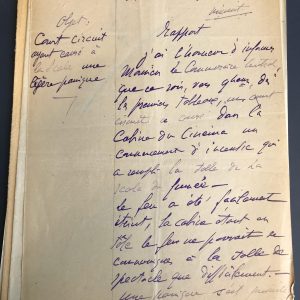 Objet:
Court Circuit
ayant causé à
une
légère panique
Rapport
j'ai l'honneur d'informer
Monsieur le Commissaire Central
que ce soir, vers
dans la
Cabine du Cinéma un
commencement d'incendie qui
a rempli la salle de la
de fumée —
le feu a été facilement
éteint, la cabine étant en
tôle le feu ne pouvait se
communiquer à la salle de
spectacle que difficilement. —
une panique s'est